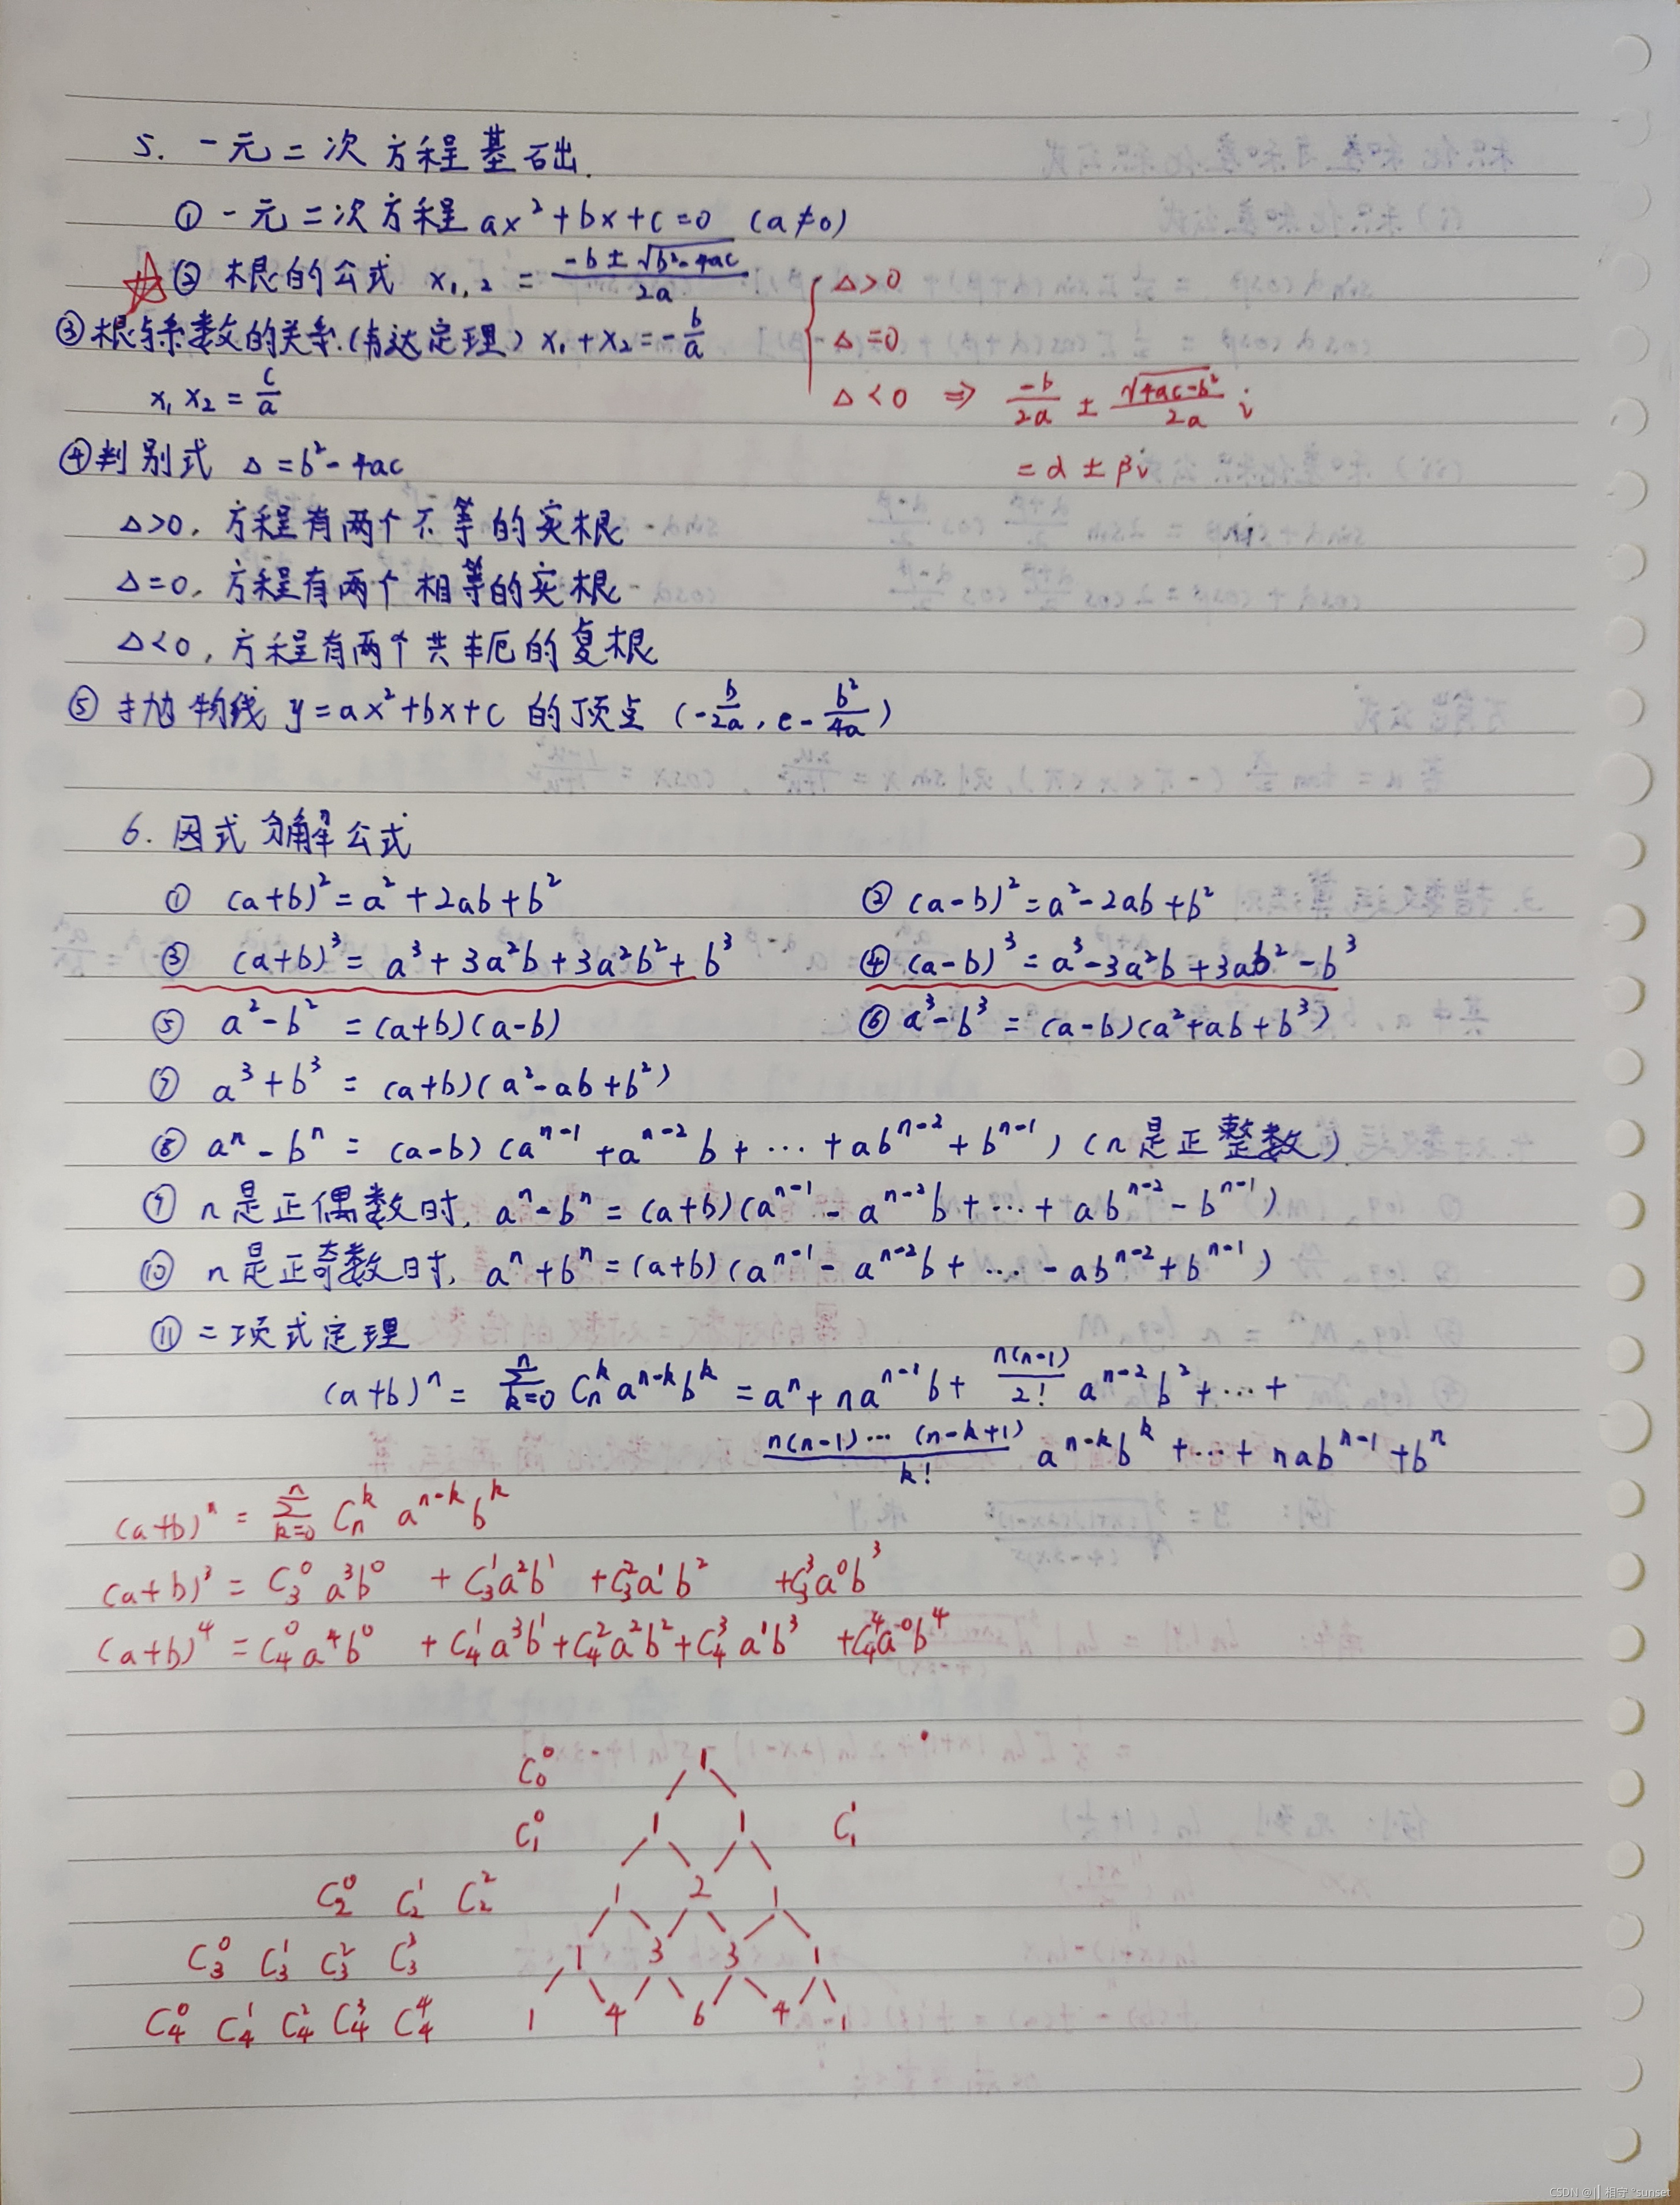 5. 一元二次方程基础.
① 一元二次方程 ax²+bx+c=0 (a≠0)
② 根的公式 x₁,₂ = (-b±√(b²-4ac))/(2a)
Δ>0
③ 根与系数的关系.(韦达定理) x₁+x₂=-b/a
Δ=0
x₁x₂ = c/a
Δ<0 ⇒ -b/(2a) ± (√(4ac-b²))/(2a) i
④ 判别式 Δ=b²-4ac
=α±βi
Δ>0, 方程有两个不等的实根
Δ=0, 方程有两个相等的实根
Δ<0, 方程有两个共轭的复根
⑤ 抛物线 y=ax²+bx+c 的顶点 (-b/(2a), c-b²/(4a))
6. 因式分解公式
① (a+b)²=a²+2ab+b² ② (a-b)²=a²-2ab+b²
③ (a+b)³=a³+3a²b+3a²b²+b³ ④ (a-b)³=a³-3a²b+3ab²-b³
⑤ a²-b²=(a+b)(a-b) ⑥ a³-b³=(a-b)(a²+ab+b³)
⑦ a³+b³=(a+b)(a²-ab+b²)
⑧ aⁿ-bⁿ=(a-b)(aⁿ⁻¹+aⁿ⁻²b+…+abⁿ⁻²+bⁿ⁻¹) (n是正整数)
⑨ n是正偶数时, aⁿ-bⁿ=(a+b)(aⁿ⁻¹-aⁿ⁻²b+…+abⁿ⁻²-bⁿ⁻¹)
⑩ n是正奇数时, aⁿ+bⁿ=(a+b)(aⁿ⁻¹-aⁿ⁻²b+…-abⁿ⁻²+bⁿ⁻¹)
⑪ 二项式定理
(a+b)ⁿ=∑_{k=0}^{n} C_n^k a^{n-k}b^k=aⁿ+naⁿ⁻¹b+(n(n-1))/(2!) aⁿ⁻²b²+…+
(n(n-1)…(n-k+1))/(k!) a^{n-k}b^k+…+nabⁿ⁻¹+bⁿ
(a+b)ⁿ=∑_{k=0}^{n} C_n^k a^{n-k}b^k
(a+b)³=C_3^0 a³b⁰+C_3^1 a²b¹+C_3^2 a¹b²+C_3^3 a⁰b³
(a+b)⁴=C_4^0 a⁴b⁰+C_4^1 a³b¹+C_4^2 a²b²+C_4^3 a¹b³+C_4^4 a⁰b⁴
C_0^0 1
C_1^0 1 1 C_1^1
C_2^0 C_2^1 C_2^2 1 2 1
C_3^0 C_3^1 C_3^2 C_3^3 1 3 3 1
C_4^0 C_4^1 C_4^2 C_4^3 C_4^4 1 4 6 4 1
CSDN @|| 相守 °sunset